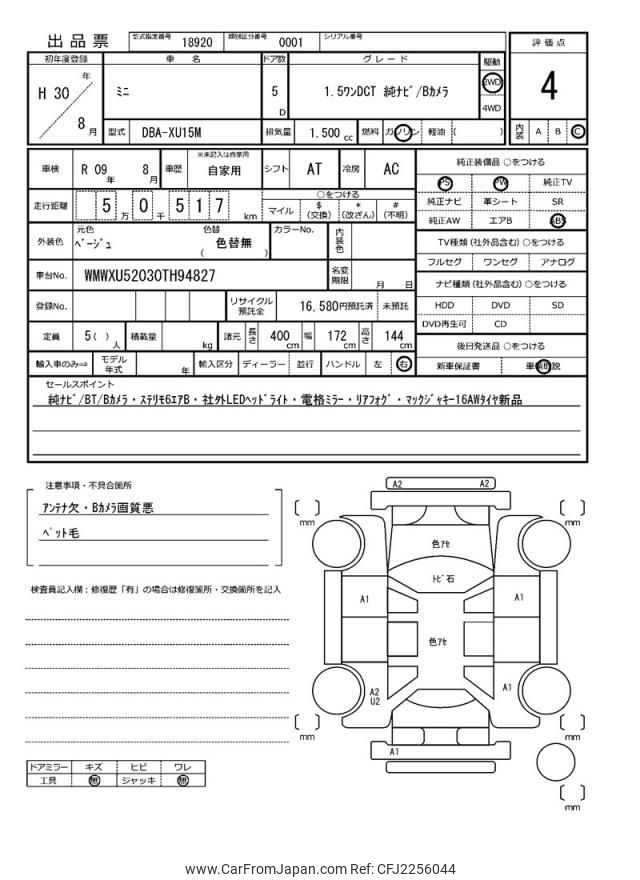 出品票
型式指定番号 18920 類別区分番号 0001 シリアル番号
評価点
4
内装 A B C
初年度登録 車名 ドア数 グレード 駆動
H 30 年 8 月
ミニ
5 D
1.5ワンDCT 純ナビ/Bカメラ
2WD
4WD
型式 DBA-XU15M 排気量 1,500 cc 燃料 ガソリン 軽油 ( )
車検 R 09 年 8 月 車歴 ※未記入は自家用 自家用 シフト AT 冷房 AC
走行距離 5 万 0 千 5 1 7 km
○をつける
マイル $ (交換) * (改ざん) # (不明)
外装色 元色 ベージュ 色替 ( 色替無 ) カラーNo. 内装色
車台No. WMWXU52030TH94827 名変期限 月 日
登録No. リサイクル預託金 16,580円預託済 未預託
定員 5( ) 人 積載量 kg 諸元 長さ 400 cm 幅 172 cm 高さ 144 cm
輸入車のみ⇒ モデル年式 年 輸入区分 ディーラー 並行 ハンドル 左 右
純正装備品 ○をつける
PS PW 純正TV
純正ナビ 革シート SR
純正AW エアB ABS
TV種類 (社外品含む) ○をつける
フルセグ ワンセグ アナログ
ナビ種類 (社外品含む) ○をつける
HDD DVD SD
DVD再生可 CD
後日発送品 ○をつける
新車保証書 車輌取説
セールスポイント
純ナビ/BT/Bカメラ・ステリモ6エアB・社外LEDヘッドライト・電格ミラー・リアフォグ・マックジャキー16AWタイヤ新品
注意事項・不具合箇所
アンテナ欠・Bカメラ画質悪
ペット毛
検査員記入欄：修復歴「有」の場合は修復箇所・交換箇所を記入
A2 A2
mm mm
色アセ
トビ石
A1 A1
色アセ
A2
U2
A1
mm mm
A1
mm
ドアミラー キズ ヒビ ワレ
工具 無 ジャッキ 無
www.CarFromJapan.com Ref: CFJ2256044